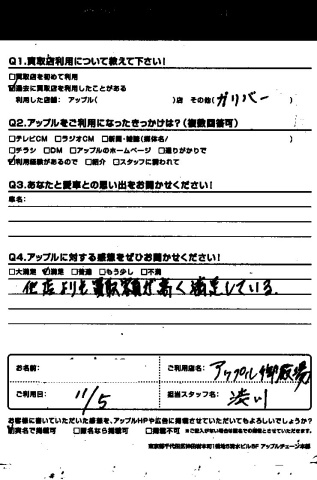 Q1.買取店利用について教えて下さい!
□買取店を初めて利用
☑過去に買取店を利用したことがある
利用した店舗: アップル( )店 その他(ガリバー )
Q2.アップルをご利用になったきっかけは?(複数回答可)
□テレビCM □ラジオCM □新聞・雑誌(媒体名/ )
□チラシ □DM □アップルのホームページ □通りがかりで
☑利用経験があるので □紹介 □スタッフに誘われて
Q3.あなたと愛車との思い出をお聞かせください!
車名:
Q4.アップルに対する感想をぜひお聞かせください!
□大満足 ☑満足 □普通 □もう少し □不満
他店よりも買取額が高く満足している
お名前:
ご利用店名: アップル御殿場
ご利用日: 11/5
担当スタッフ名: 渋川
お客様に書いていただいた感想を、アップルHPや広告に掲載させていただいてもよろしいでしょうか?
☑実名で掲載可 □匿名なら掲載可 □掲載不可 ※ご記入がない場合は匿名での掲載とさせていただきます。